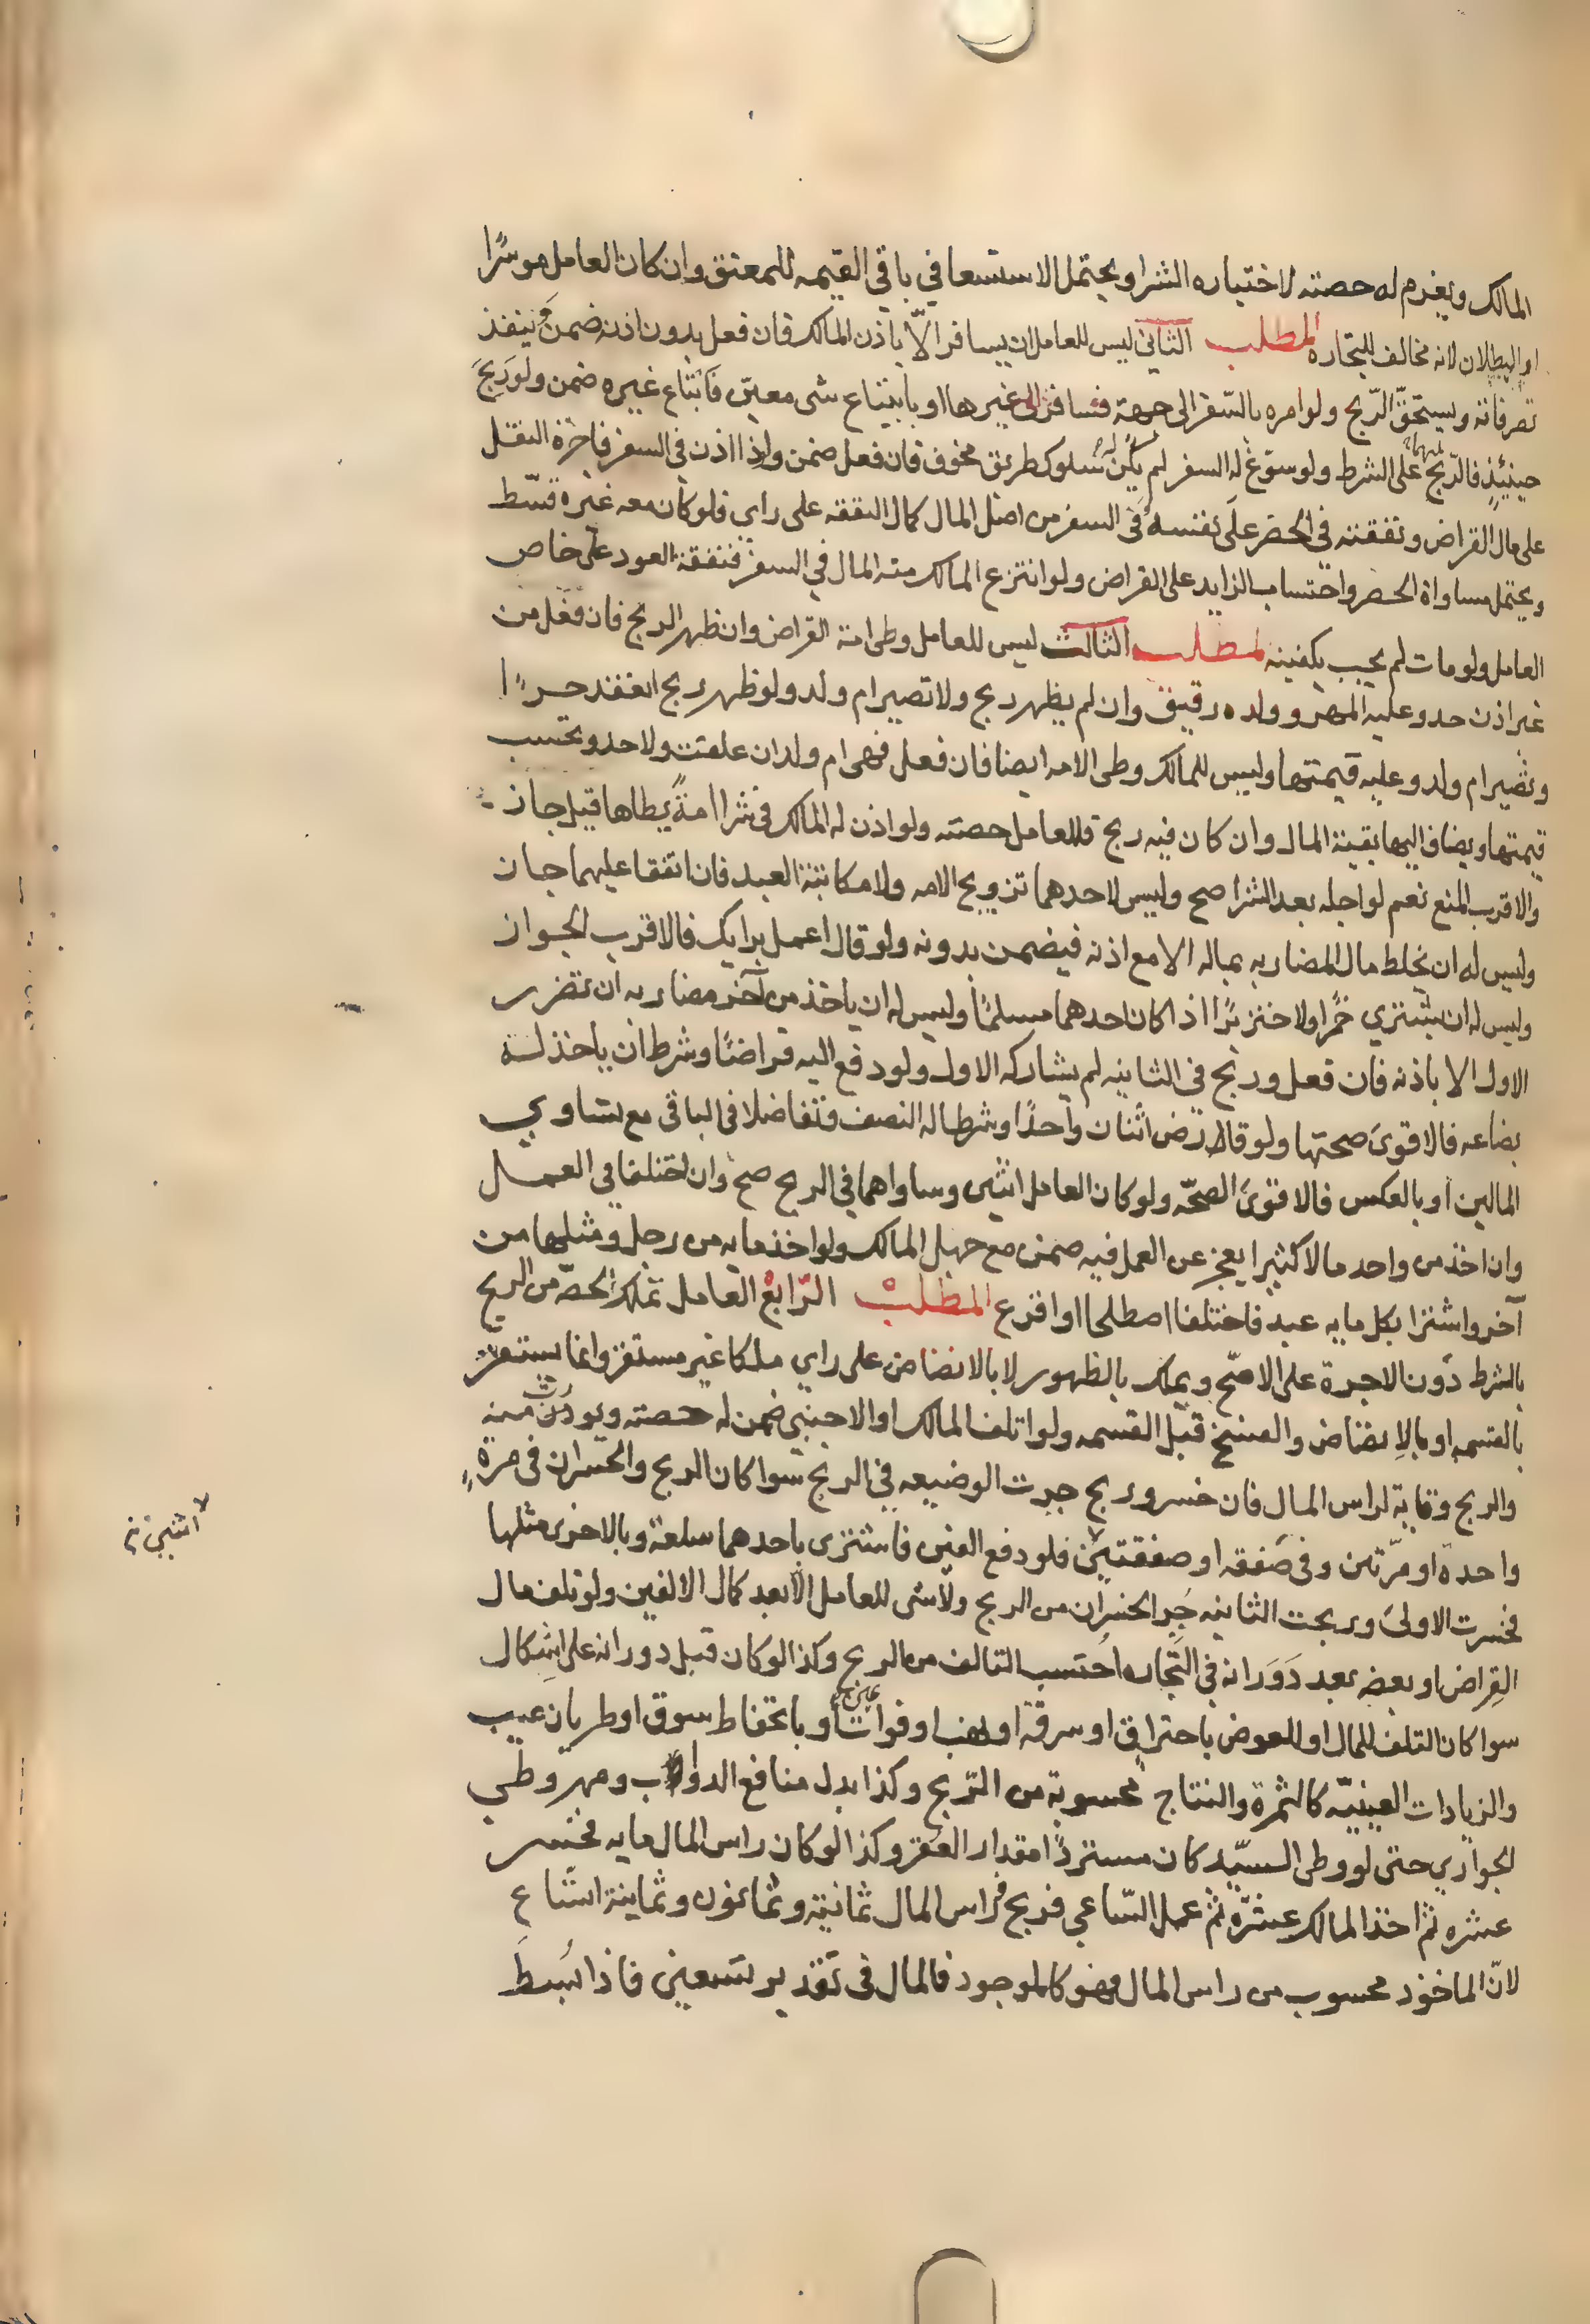 المالك ويغرم له حصته لاختياره الشرا ويحتمل الاستسعا في باقي القيمه للمعتق وان كان العامل موسرًا
او البطلان لانه مخالف للتجاره المطلب الثاني ليس للعامل ان يسافر الّا باذن المالك فان فعل بدون اذنه ضمن وينفذ
تصرفاته ويستحقّ الرّبح ولو امره بالسّفر الى جهة فسافر الى غيرها او بابتياع شى معيّن فابتاع غيره ضمن ولو رَبِحَ
حينئذٍ فالرّبح لهما على الشرط ولو سوّغ له السفر لم يكن له سُلوك طريق مخوف فان فعل ضمن واذا اذن في السفر فاجرة النقل
على مال القراض ونفقته في الحضر على نفسه وفى السفر من اصل المال كمال النفقه على راي فلو كان معه غيره قسّط
ويحتمل مساواة الحضر واحتساب الزايد على القراض ولو انتزع المالك منه المال في السفر فنفقة العود على خاص
العامل ولو مات لم يجب تكفينه المطلب الثالث ليس للعامل وطى امة القراض وان ظهر الربح فان فَعَل من
غير اذن حد وعليه المهر وولده رقيق وان لم يظهر ربح ولا تصير ام ولد ولو ظهر ربح انعقد حرًا
وتصير ام ولد وعليه قيمتها وليس للمالك وطى الامه ايضا فان فعل فهى ام ولد ان علقت ولا حد وتحتسب
قيمتها ويضاف اليها بقية المال وان كان فيه ربح فللعامل حصته ولو اذن له المالك في شرا امةً يطاها قيل جاز
والاقرب المنع نعم لو احله بعد الشرا صح وليس لاحدهما تزويج الامه ولا مكاتبة العبد فان اتفقا عليهما جاز
وليس له ان يخلط مال المضاربه بماله الا مع اذنه فيضمن بدونه ولو قال اعمل برايك فالاقرب الجواز
وليس له ان يشتري خمرًا ولا خنزيرًا اذا كان احدهما مسلمًا وليس له ان ياخذ من آخر مضاربه ان تضرر
الاول الا باذنه فان فعل وربح فى الثانيه لم يشاركه الاول ولو دفع اليه قراضًا وشرط ان ياخذ له
بضاعه فالاقوىَ صحتها ولو قارض اثنان واحدًا وشرطا له النصف وتفاضلا فى الباقى مع تساوي
المالين او بالعكس فالاقوىَ الصحّه ولو كان العامل اثنين وساواهما في الربح صح وان اختلفا في العمل
وان اخذ من واحد مالا كثيرا يعجز عن العمل فيه ضمن مع جهل المالك ولو اخذ مايه من رجل ومثلها من
آخر واشترا بكل مايه عبد فاختلفا اصطلحا او اقرع المطلب الرّابع العامل يملك الحصّة من الربح
بالشرط دون الاجرة على الاصحّ ويملك بالظهور لا بالانضاض على راي ملكا غير مستقر وانما يستقر
بالقسمه او بالانضاض والفسخ قبل القسمه ولو اتلف المالك او الاجنبي ضمن له حصته ويورث منه
والربح وقاية لراس المال فان خسر وربح جبرت الوضيعه في الربح سوا كان الربح والخسران فى مرةٍ
واحدة او مرّتين وفى صَفقه او صفقتين فلو دفع الفين فاشترى باحدهما سلعة وبالاخرى مثلها
فخسرت الاولىَ وربحت الثانيه جُبر الخسران من الربح ولا شى للعامل الّا بعد كمال الالفين ولو تلف مال
القِراض او بعضه بعد دَوَرانه في التّجاره احُتسب التالف من الربح وكذا لو كان قبل دورانه على اشكال
سوا كان التلف للمال او للعوض باحتراق او سرقة او نهب او فوات عين او بانخفاط سوق او طريان عيب
والزيادات العينيّه كالثمرة والنتاج محسوبة من الرّبح وكذا بدل منافع الدواب ومهر وطي
الجواري حتى لو وطى السيّد كان مستردًا مقدار العُقر وكذا لو كان راس المال مايه فخسر
عشره ثم اخذ المالك عشرّه ثم عمل السّاعي فربح فراس المال ثمانية وثمانون وثمانية اتساع
لانّ الماخوذ محسوب من راس المال فهو كالموجود فالمال فى تقدير تسعين فاذا بُسطَ